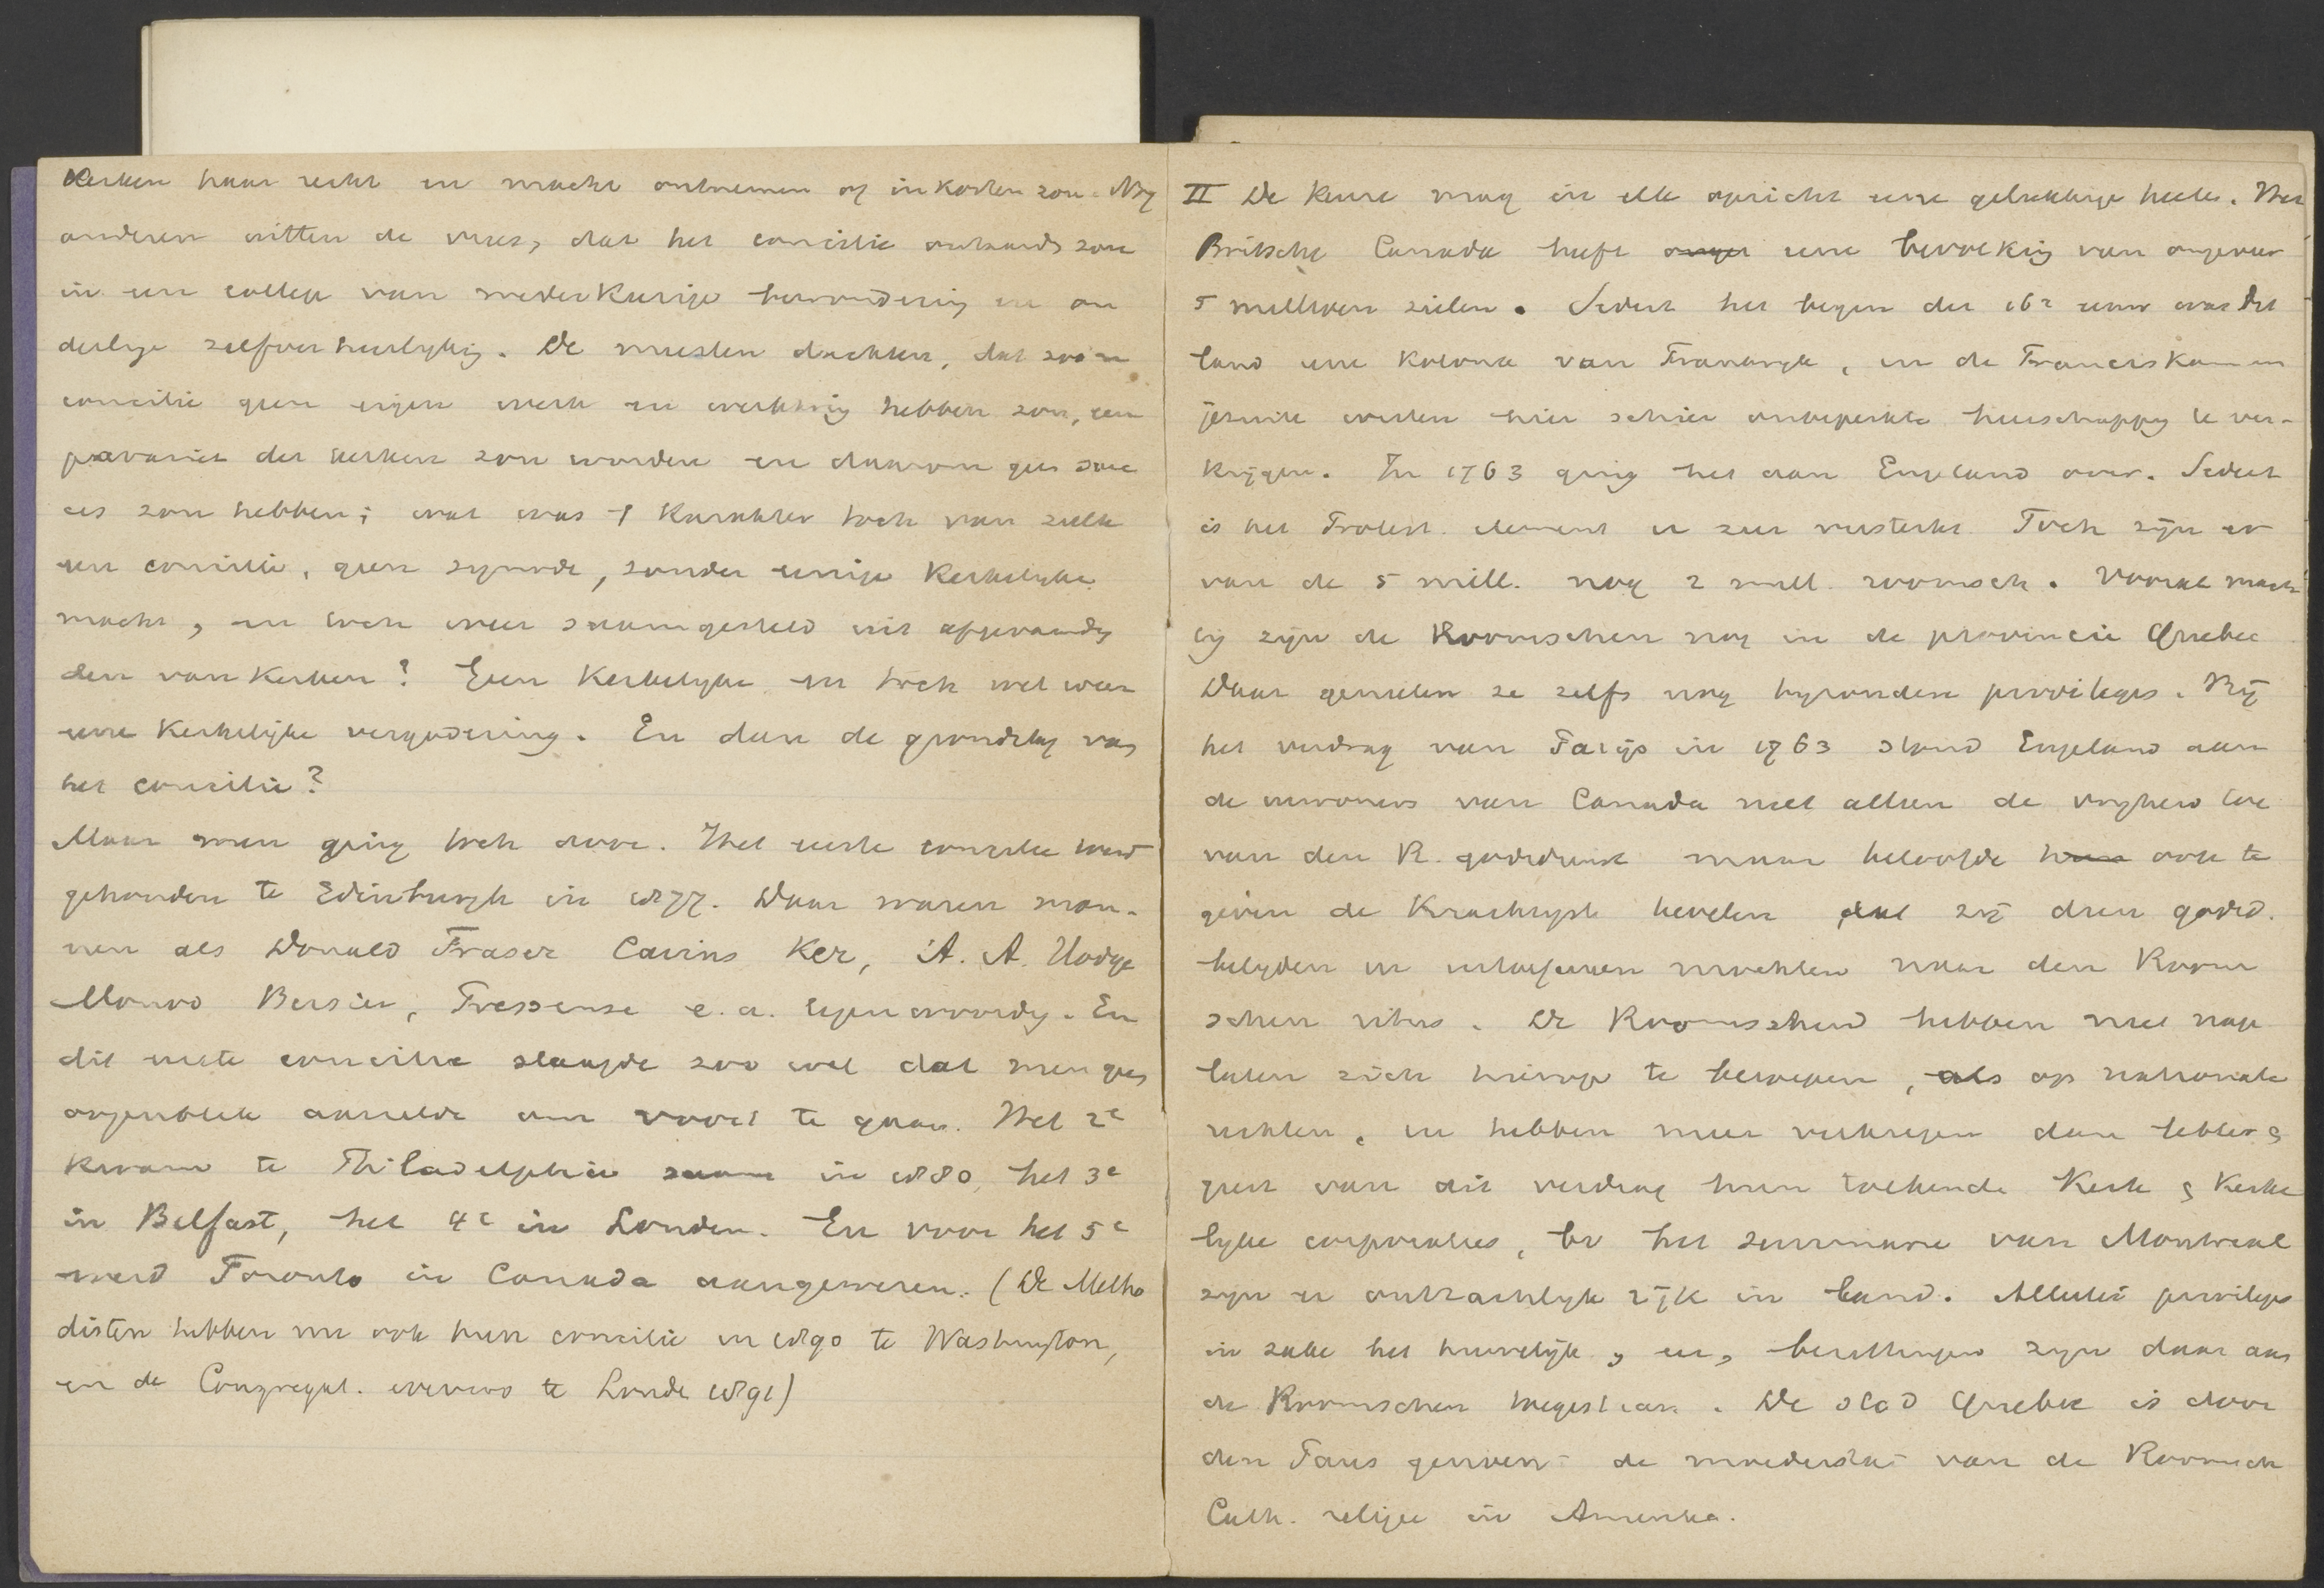 Kerken haar recht en macht ontnemen of inkorten zou. Nog
anderen uitten de vrees, dat het concilie ontaarden zou
in een college van wederkeerige bewondering en on
derlinge zelfverheerlyking. De meesten dachten, dat zoo'n
concilie geen eigen werk en werkkring hebben zou, een
der kerken zou worden en daarom geen succes
zou hebben; wat was 't karakter toch van zulk
een concilie, geen synode, zonder eenige kerkelyke
macht, en toch weer saamgesteld uit afgevaardig
den van kerken? Geen kerkelyke en toch wel weer
eene kerkelijke vergadering. En dan de grondslag van
het concilie?
Maar men ging toch door. Het eerste concilie werd
gehouden te Edinburgh in 1877. Daar waren man-
nen als Donald Fraser Cairns Ker, A. A. Hodge
Monod Bersier, Pressense e.a. tegenwoordig. En
dit eerste concilie slaagde zoo wel dat men geen
oogenblik aarzelde om voort te gaan. Het 2e
kwam te Philadelphia saam in 1880, het 3e
in Belfast, het 4e in Londen. En voor het 5e
werd Toronto in Canada aangewezen. (De Metho
disten hebben nu ook hun concilie in 1890 te Washington,
en de Congregat. eveneens te Londe 1891)
II De keuze mag in elk opzicht eene gelukkige heeten. Het
Britsche Canada heeft onger eene bevolking van ongeveer
5 millioen zielen. Sedert het begin der 16e eeuw was dit
land eene kolonie van Frankryk, en de Franciskanen
jezuiten wisten hier schier onbeperkte heerschappy te ver-
krijgen. In 1763 ging het aan Engeland over. Sedert
is het Protest. element er zeer versterkt. Toch zijn er
van de 5 mill. nog 2 mill. roomsch. Vooral mach
tig zijn de Roomschen nog in de provincie Quebec
Daar genieten ze zelfs nog byzondere privileges. Bij
het verdrag van Parijs in 1763 stond Engeland aan
de inwoners van Canada niet alleen de vryheid toe
van den R. godsdienst maar beloofde hun ook te
geven de krachtigste bevelen dat zij dien godsd.
belyden en uitoefenen mochten naar den Room
schen ritus. De Roomschen hebben niet nage
laten zich hierop te beroepen, als op nationale
rechten, en hebben meer verkregen dan letter &
geest van dit verdrag hun toekende Kerk & kerke
lyke corporaties, bv het seminarie van Montreal
zyn er ontzachlyk rijk in land. Allerlei privileges
in zake het huwelijk, enz, zyn daar aan
de Roomschen toegestaan. De stad Quebec is door
den Paus genoemd de moederstad van de Roomsch
Cath. religie in Amerika.